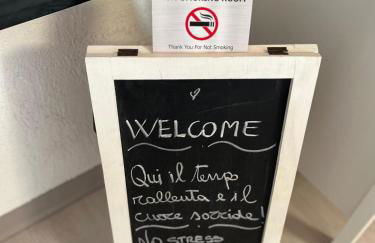 SMOKING ROOM
Thank You For Not Smoking
WELCOME
Qui il tempo
rallenta e il
cuore sorride!
NO STRESS